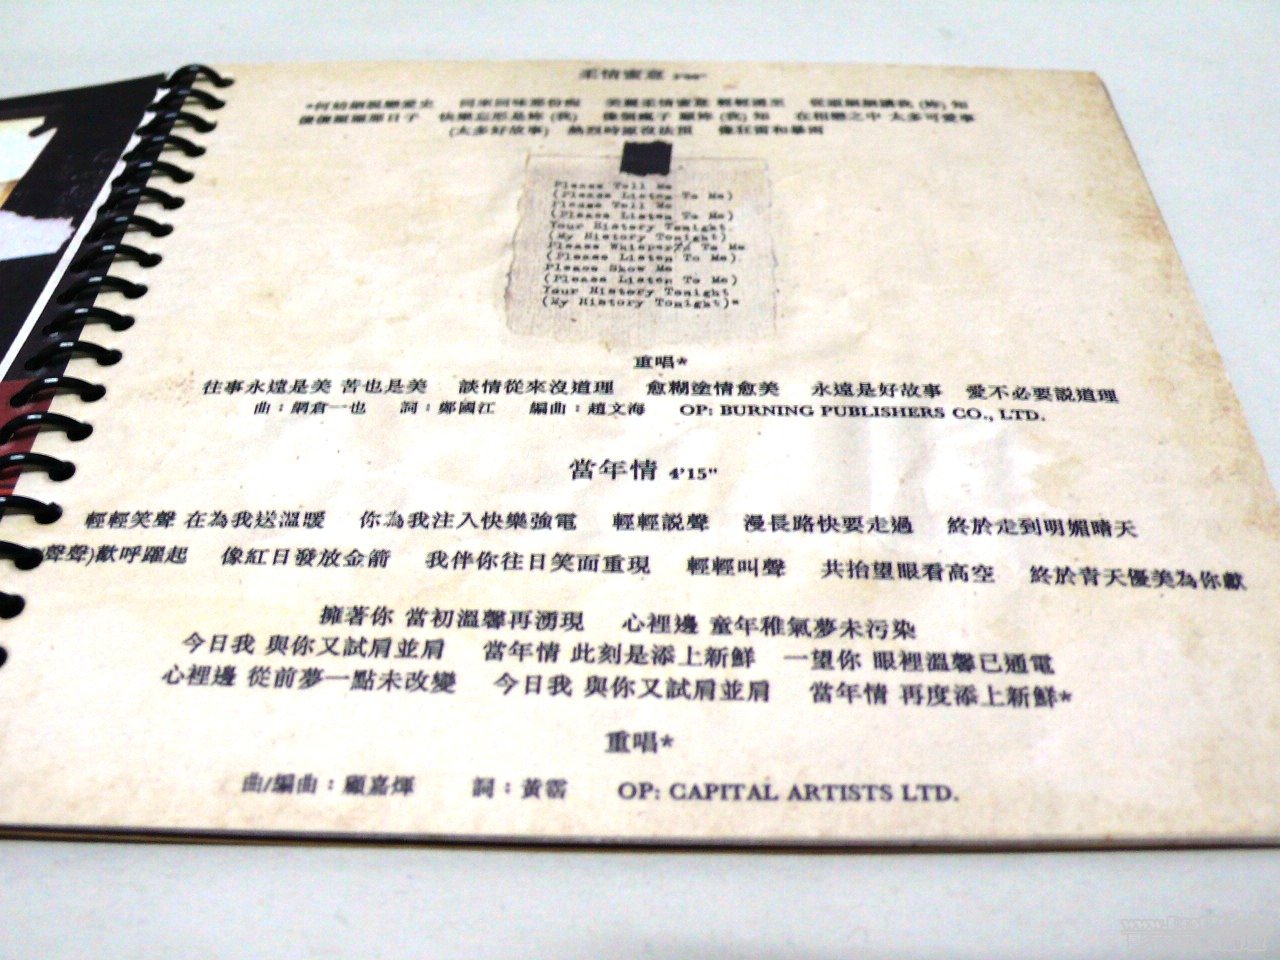 柔情蜜意
*何妨細說戀愛史 回來回味那份痴 美麗柔情蜜意 輕輕透至 從頭細細講我 (妳) 知
快樂忘那是妳 (我) 像個瘋子 願妳 (我) 知 在相戀之中 太多可愛事
(太多好故事) 熱烈時原沒法預 像狂雷和暴雨
Please Tell Me
(Please Listen To Me)
Please Tell Me
(Please Listen To Me)
Your History Tonight
(My History Tonight)
Please Whisper To Me
(Please Listen To Me)
Please Show Me
(Please Listen To Me)
Your History Tonight
(My History Tonight)*
重唱*
往事永遠是美 苦也是美 談情從來沒道理 愈糊塗情愈美 永遠是好故事 愛不必要說道理
曲：網倉一也 詞：鄭國江 編曲：趙文海 OP: BURNING PUBLISHERS CO., LTD.
當年情 4'15"
輕輕笑聲 在為我送溫暖 你為我注入快樂強電 輕輕說聲 漫長路快要走過 終於走到明媚晴天
聲聲)歡呼躍起 像紅日發放金箭 我伴你往日笑面重現 輕輕叫聲 共抬望眼看高空 終於青天優美為你獻
擁著你 當初溫馨再湧現 心裡邊 童年稚氣夢未污染
今日我 與你又試肩並肩 當年情 此刻是添上新鮮 一望你 眼裡溫馨已通電
心裡邊 從前夢一點未改變 今日我 與你又試肩並肩 當年情 再度添上新鮮*
重唱*
曲/編曲：顧嘉煇 詞：黃霑 OP: CAPITAL ARTISTS LTD.